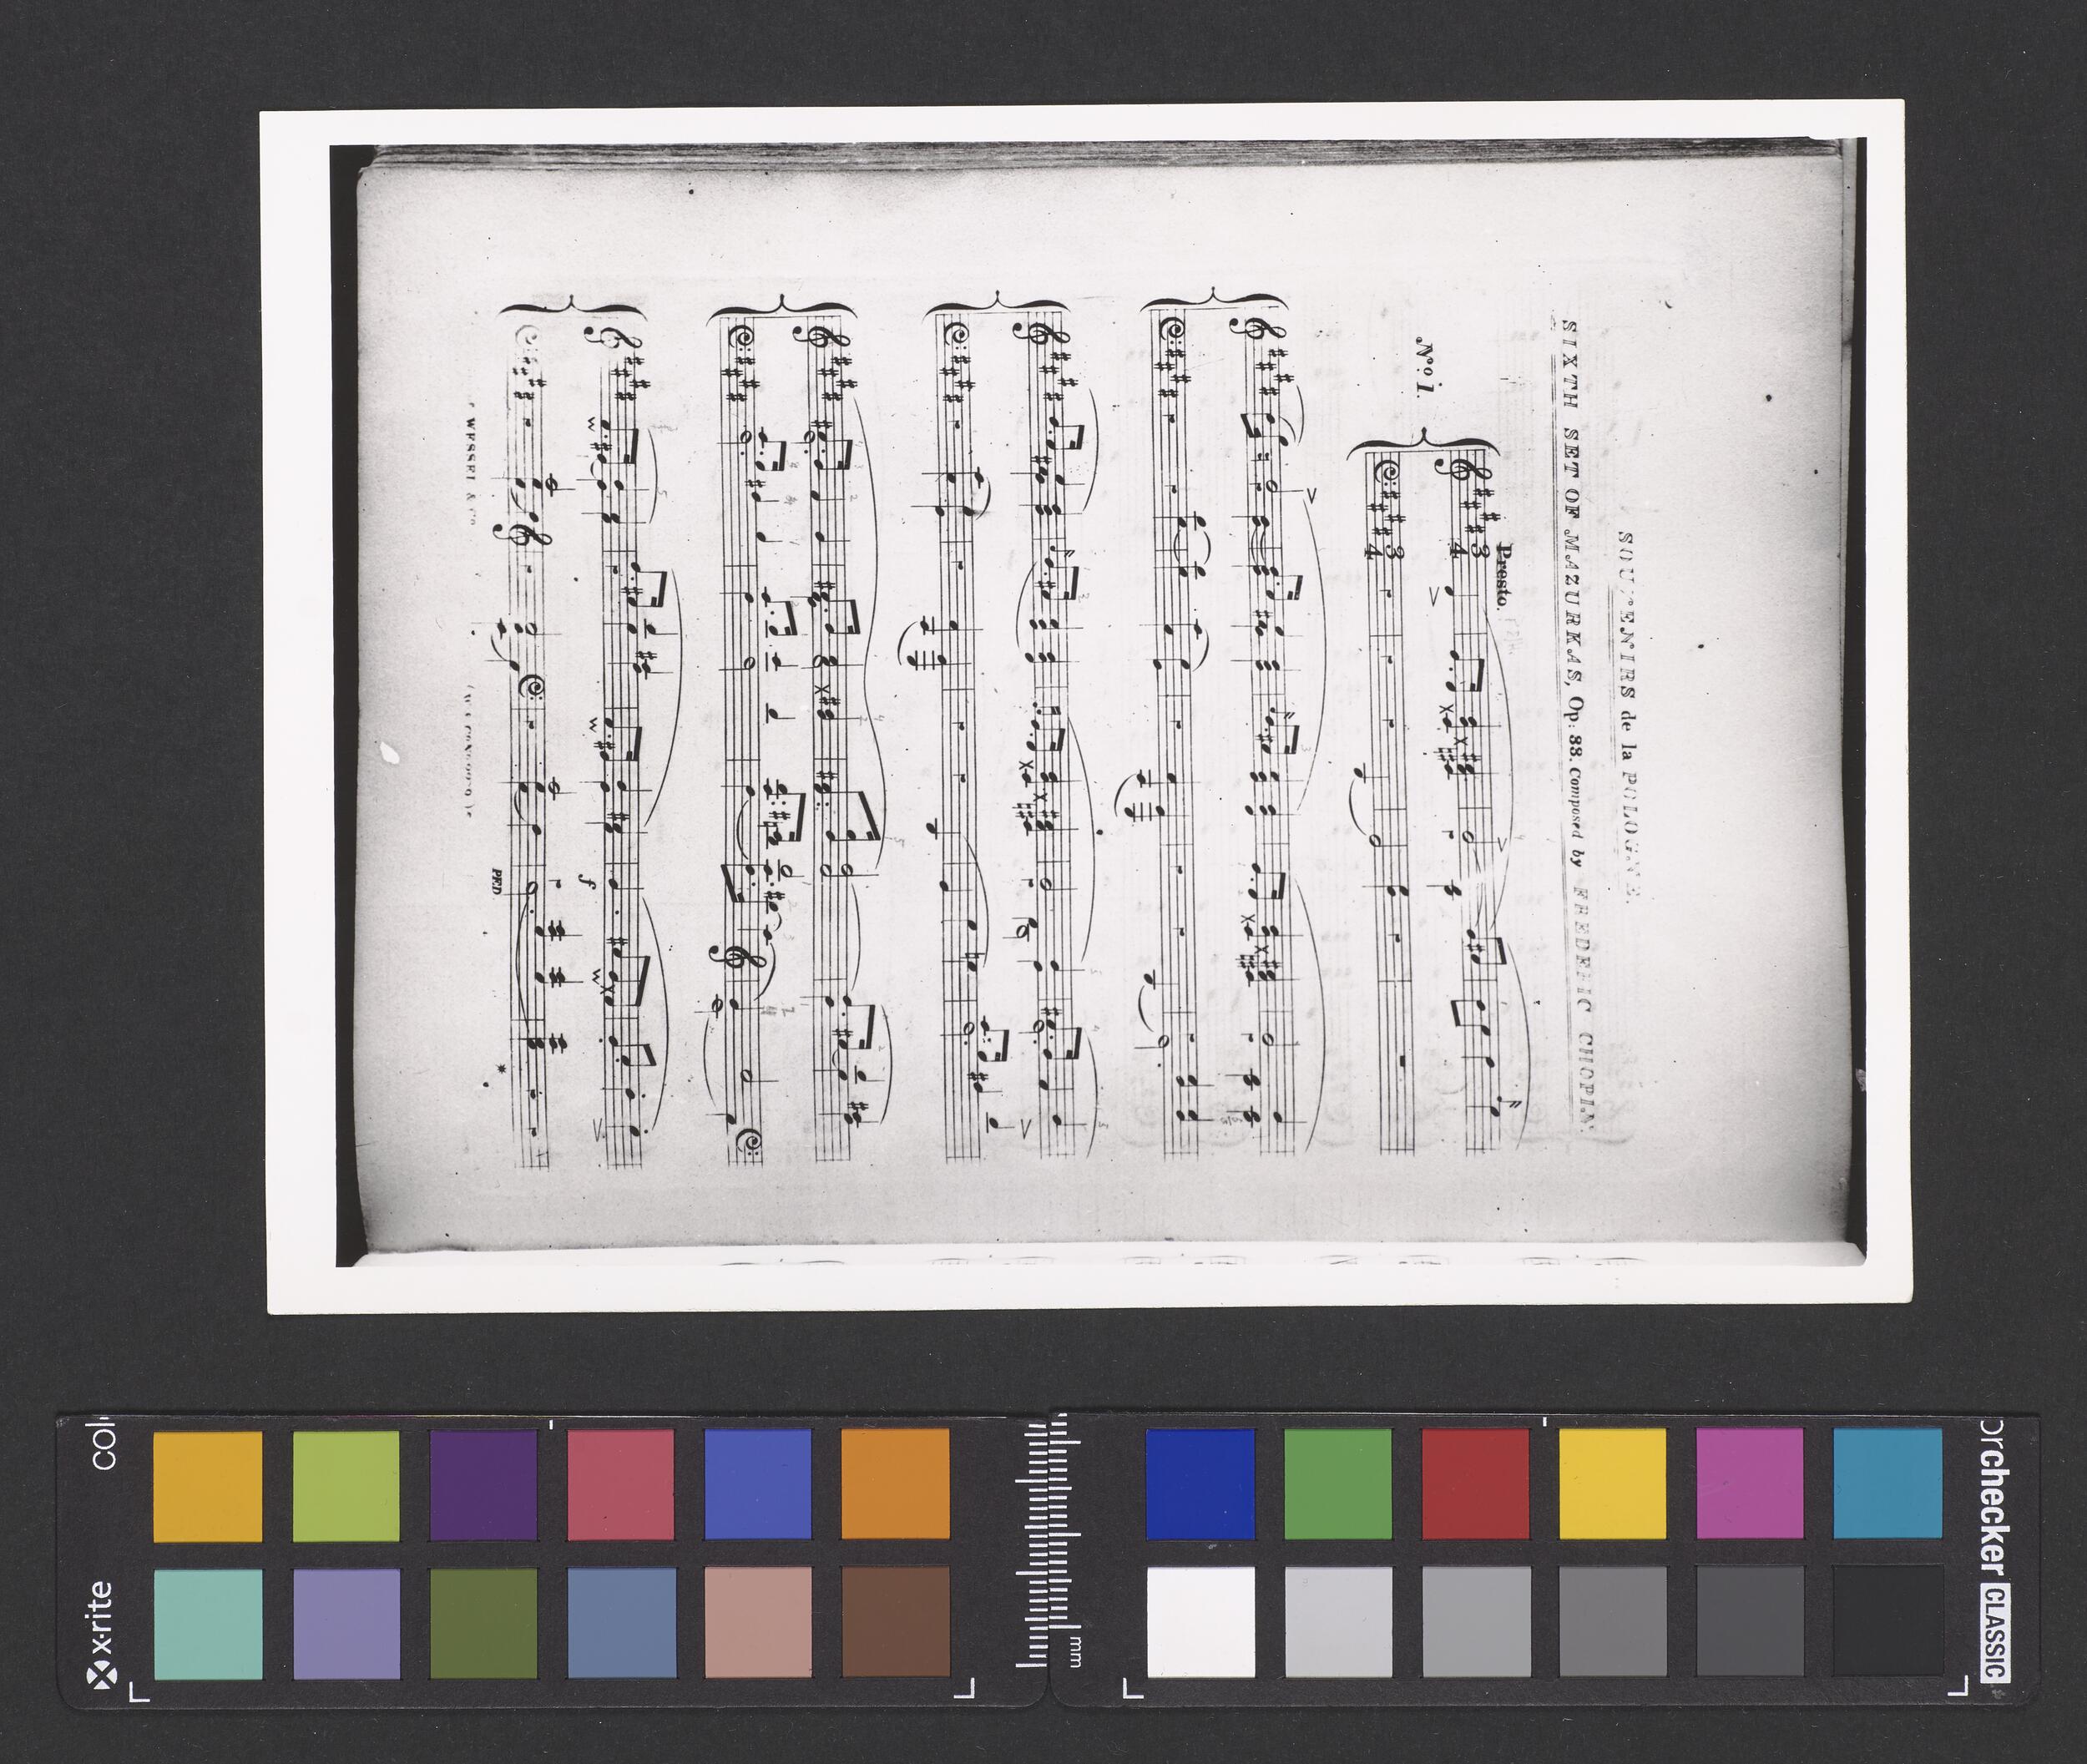 SOUVENIRS de la POLOGNE.
SIXTH SET OF MAZURKAS, Op: 33. Composed by FREDERIC CHOPIN
Presto.
No. 1.
f
PED
WESSEL & Co
x-rite
colorchecker CLASSIC
mm